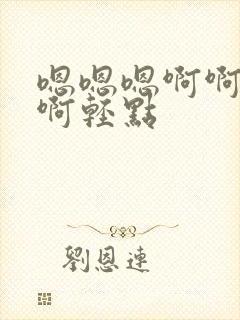 嗯嗯嗯啊啊
啊輕點
劉恩連